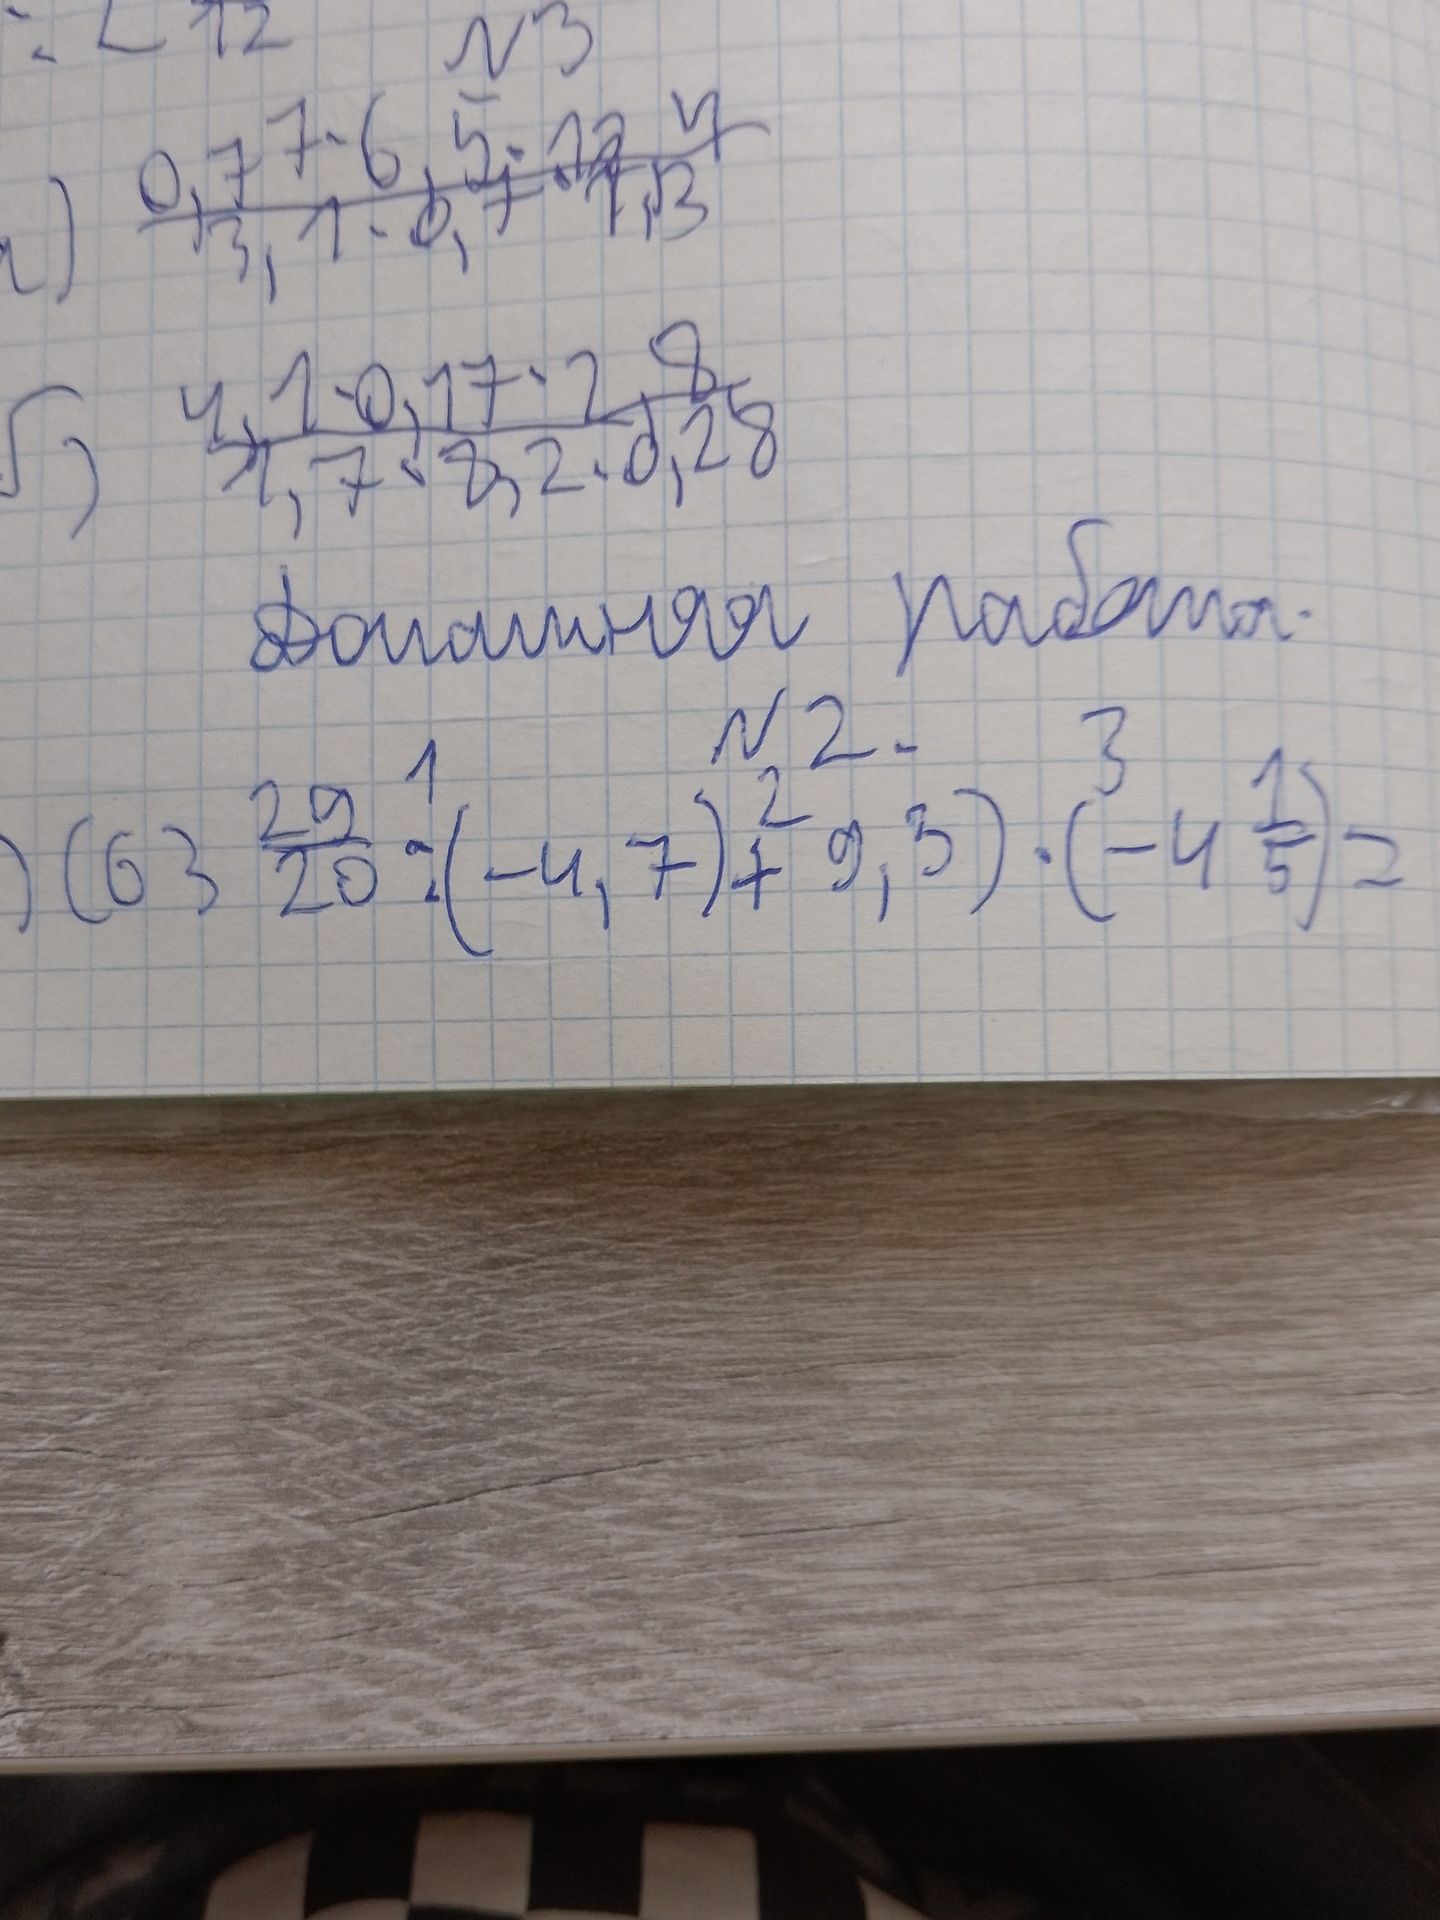 : 12
N3
а) 0,77·6,5·12,4
3,1·0,7·1,3
б) 4,1·0,17·2,8
1,7·8,2·0,28
Домашняя работа.
N2.
1 2 3
) (63 29/20 : (-4,7) + 9,3) · (-4 1/5) =